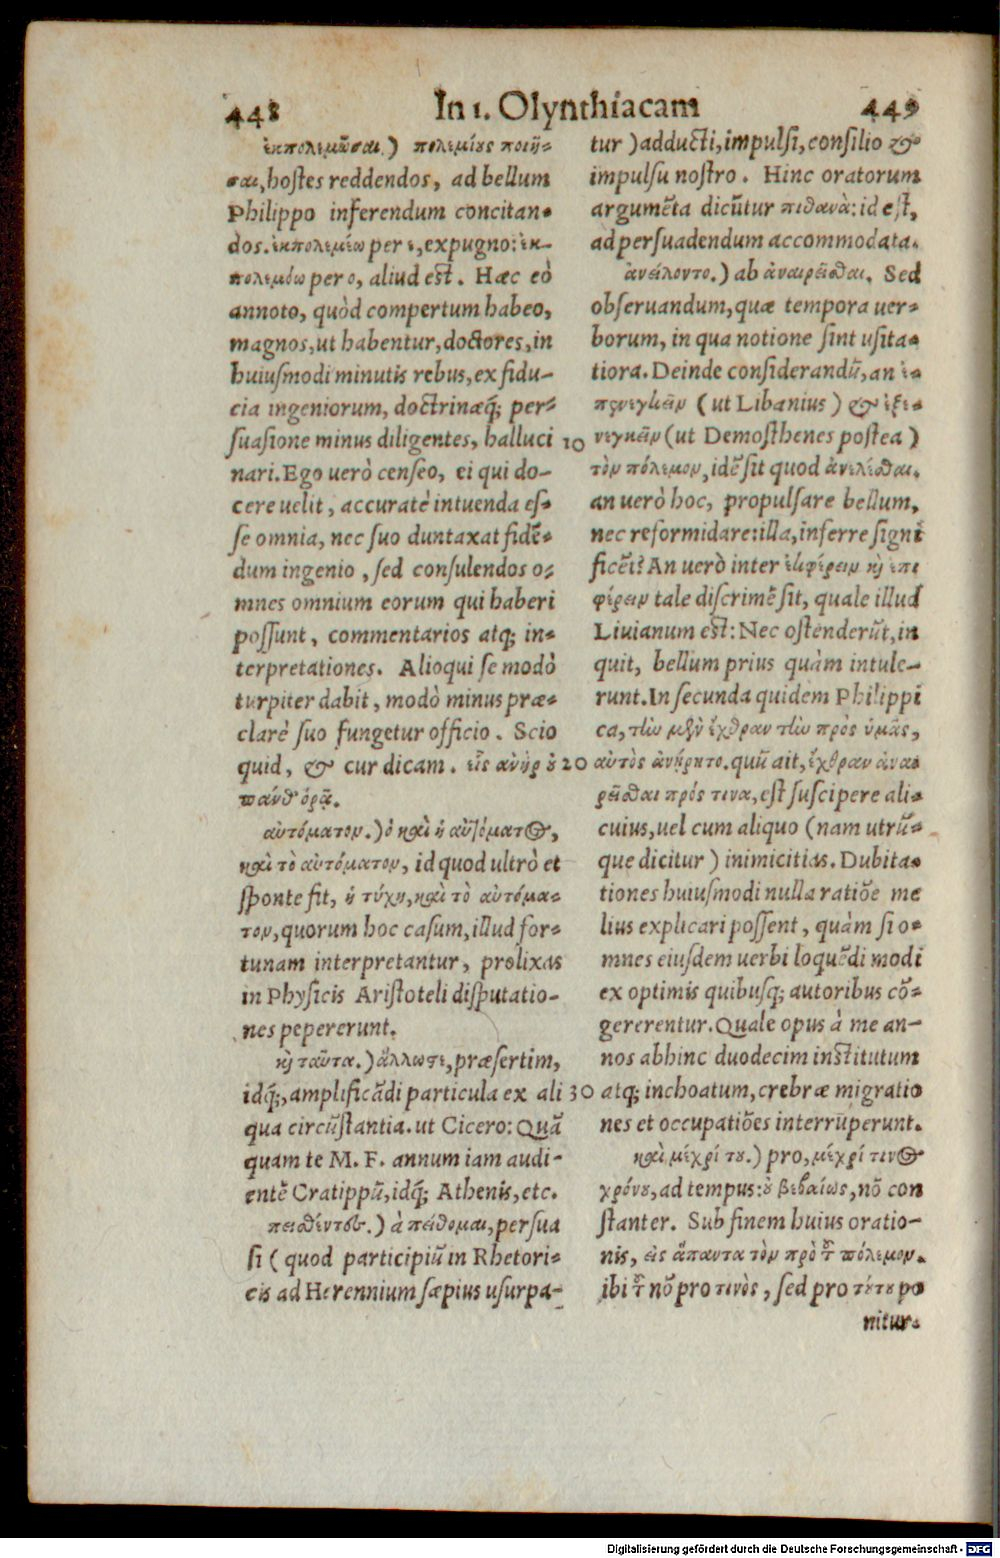 448 In 1. Olynthiacam 449
ἐκπολεμῶσαι.) πολεμίους ποιῆ-
σαι, hostes reddendos, ad bellum
Philippo inferendum concitan-
dos. ἐκπολεμέω per ε, expugno: ἐκ-
πολεμόω per ο, aliud est. Hæc eò
annoto, quòd compertum habeo,
magnos, ut habentur, doctores, in
huiusmodi minutis rebus, ex fidu-
cia ingeniorum, doctrinæq́; per-
suasione minus diligentes, halluci
nari. Ego uerò censeo, ei qui do-
cere uelit, accuratè intuenda es-
se omnia, nec suo duntaxat fidē-
dum ingenio, sed consulendos o-
mnes omnium eorum qui haberi
possunt, commentarios atq; in-
terpretationes. Alioqui se modò
turpiter dabit, modò minus præ-
clarè suo fungetur officio. Scio
quid, & cur dicam. εἷς ἀνὴρ οὐ
πάνθ' ὁρᾷ.
αὐτόματον.) ὁ καὶ ἡ αὐτόματος,
καὶ τὸ αὐτόματον, id quod ultrò et
sponte fit, ἡ τύχη, καὶ τὸ αὐτόμα-
τον, quorum hoc casum, illud for-
tunam interpretantur, prolixas
in Physicis Aristoteli disputatio-
nes pepererunt.
καὶ ταῦτα.) ἄλλωστε, præsertim,
idq́;, amplificādi particula ex ali
qua circūstantia. ut Cicero: Quā
quam te M. F. annum iam audi-
entē Cratippū, idq́; Athenis, etc.
πεισθέντες.) à πείθομαι, persua
si (quod participiū in Rhetori-
cis ad Herennium sæpius usurpa-
tur) adducti, impulsi, consilio &
impulsu nostro. Hinc oratorum
argumēta dicūtur πιθανὰ: id est,
ad persuadendum accommodata.
ἀνείλοντο.) ab ἀναιρεῖσθαι. Sed
obseruandum, quæ tempora uer-
borum, in qua notione sint usita-
tiora. Deinde considerandū, an ἐ-
πενεγκεῖν (ut Libanius) & ἐξε-
10 νεγκεῖν (ut Demosthenes postea)
τὸν πόλεμον, idē sit quod ἀνελέσθαι.
an uerò hoc, propulsare bellum,
nec reformidare: illa, inferre signi
ficēt? An uerò inter ἐκφέρειν καὶ ἐπι
φέρειν tale discrimē sit, quale illud
Liuianum est: Nec ostenderūt, in
quit, bellum prius quàm intule-
runt. In secunda quidem Philippi
ca, τὴν μὲν ἔχθραν τὴν πρὸς ὑμᾶς,
20 αὐτὸς ἀνῄρητο. quū ait, ἔχθραν ἀναι
ρεῖσθαι πρός τινα, est suscipere ali-
cuius, uel cum aliquo (nam utrū-
que dicitur) inimicitias. Dubita-
tiones huiusmodi nulla ratiōe me
lius explicari possent, quàm si o-
mnes eiusdem uerbi loquēdi modi
ex optimis quibusq; autoribus cō-
gererentur. Quale opus à me an-
nos abhinc duodecim institutum
30 atq; inchoatum, crebræ migratio
nes et occupatiōes interrūperunt.
καὶ μέχρί του.) pro, μέχρί τινος
χρόνου, ad tempus: οὐ βεβαίως, nō con
stanter. Sub finem huius oratio-
nis, εἰς ἅπαντα τὸν πρὸ τοῦ πόλεμον.
ibi τοῦ nō pro τινὸς, sed pro τούτου po
nitur.
Digitalisierung gefördert durch die Deutsche Forschungsgemeinschaft - DFG